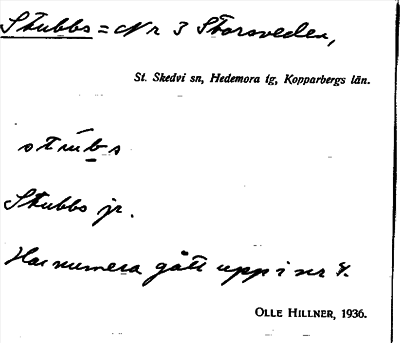 Stubbs = Nr 3 Storsveden,
St. Skedvi sn, Hedemora tg, Kopparbergs län.
stubs
Stubbs jr.
Har numera gått upp i nr 4.
OLLE HILLNER, 1936.